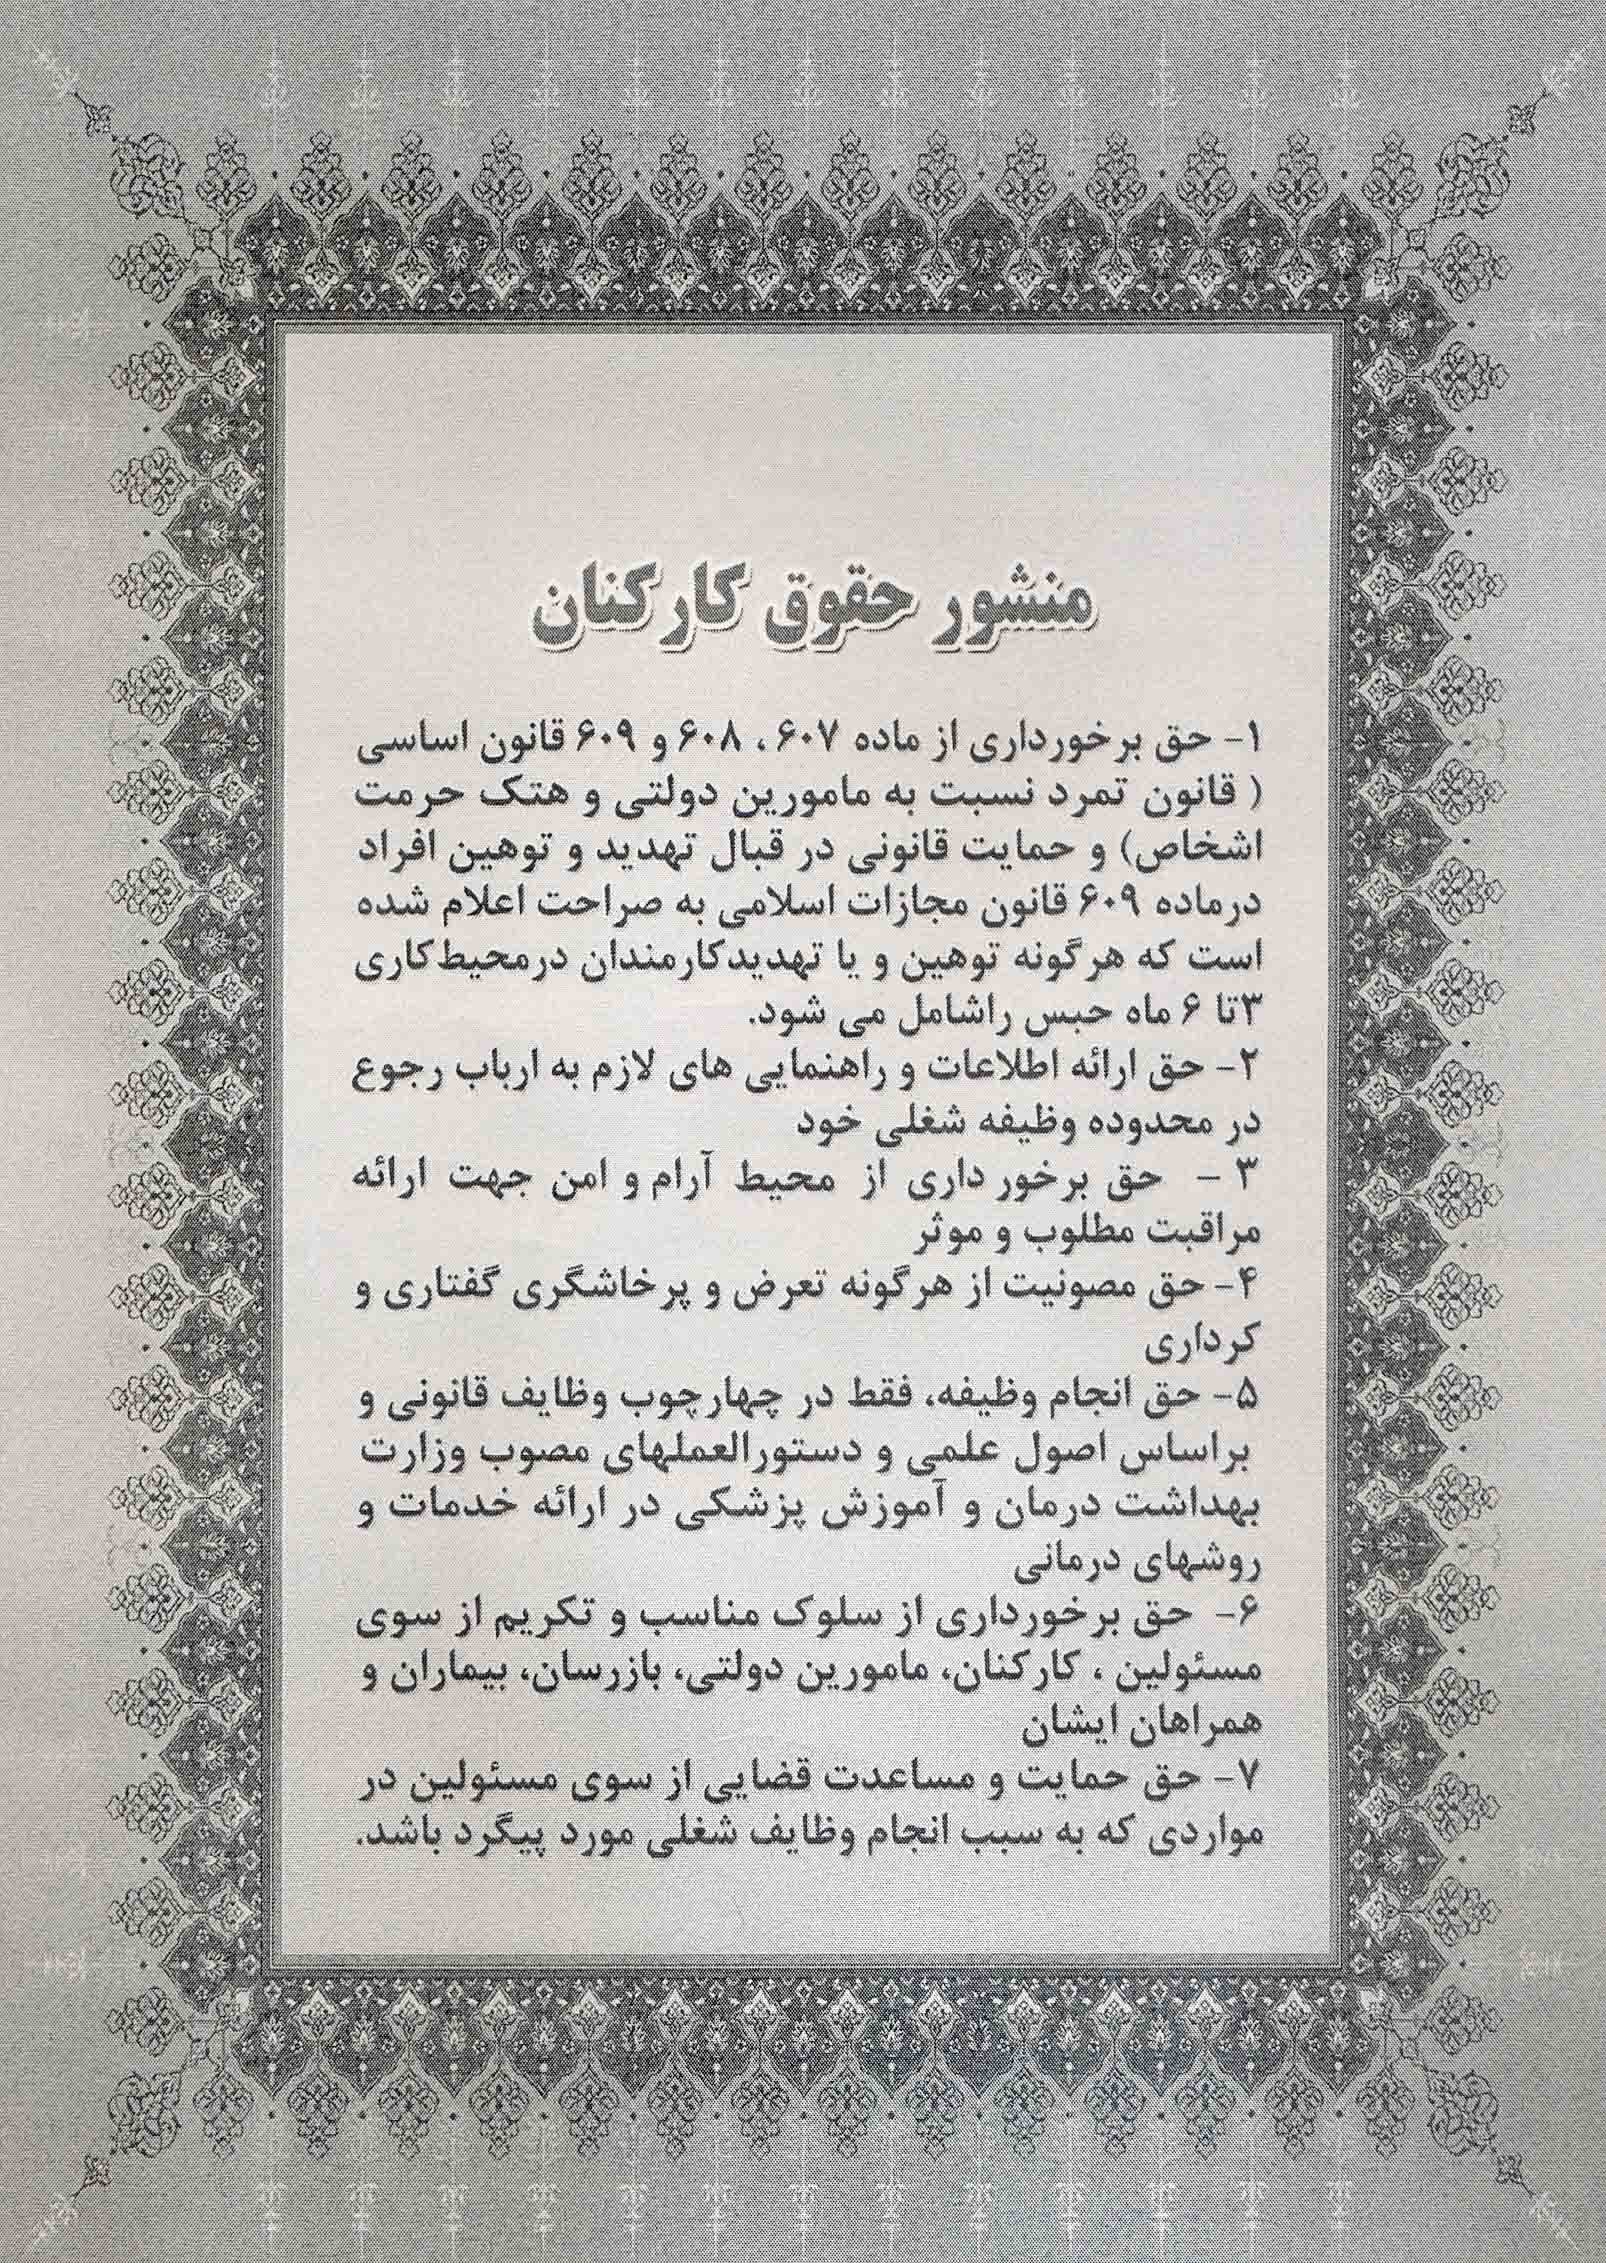 منشور حقوق کارکنان
۱- حق برخورداری از ماده ۶۰۷ ، ۶۰۸ و ۶۰۹ قانون اساسی
( قانون تمرد نسبت به مامورین دولتی و هتک حرمت
اشخاص) و حمایت قانونی در قبال تهدید و توهین افراد
درماده ۶۰۹ قانون مجازات اسلامی به صراحت اعلام شده
است که هرگونه توهین و یا تهدیدکارمندان درمحیط‌کاری
۳تا ۶ ماه حبس راشامل می شود.
۲- حق ارائه اطلاعات و راهنمایی های لازم به ارباب رجوع
در محدوده وظیفه شغلی خود
۳ - حق برخور داری از محیط آرام و امن جهت ارائه
مراقبت مطلوب و موثر
۴- حق مصونیت از هرگونه تعرض و پرخاشگری گفتاری و
کرداری
۵- حق انجام وظیفه، فقط در چهارچوب وظایف قانونی و
براساس اصول علمی و دستورالعملهای مصوب وزارت
بهداشت درمان و آموزش پزشکی در ارائه خدمات و
روشهای درمانی
۶- حق برخورداری از سلوک مناسب و تکریم از سوی
مسئولین ، کارکنان، مامورین دولتی، بازرسان، بیماران و
همراهان ایشان
۷- حق حمایت و مساعدت قضایی از سوی مسئولین در
مواردی که به سبب انجام وظایف شغلی مورد پیگرد باشد.